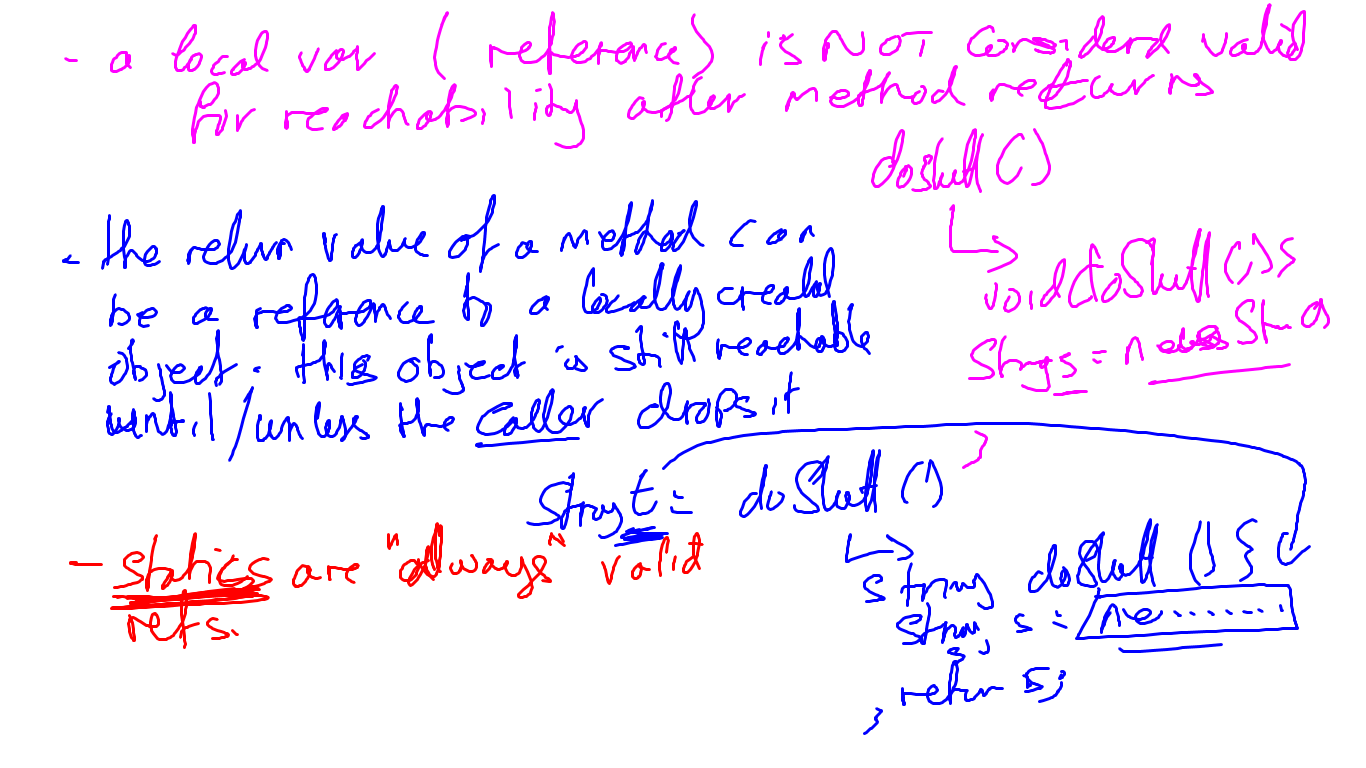 - a local var (reference) is NOT considerd valid
for reachability after method returns
doStuff()
void doStuff(){
String s = new String
}
- the return value of a method can
be a reference to a locally created
object. this object is still reachable
until/unless the caller drops it
String t = doStuff()
String doStuff(){
String s = ne.......
return s;
}
- statics are "always" valid
refs.